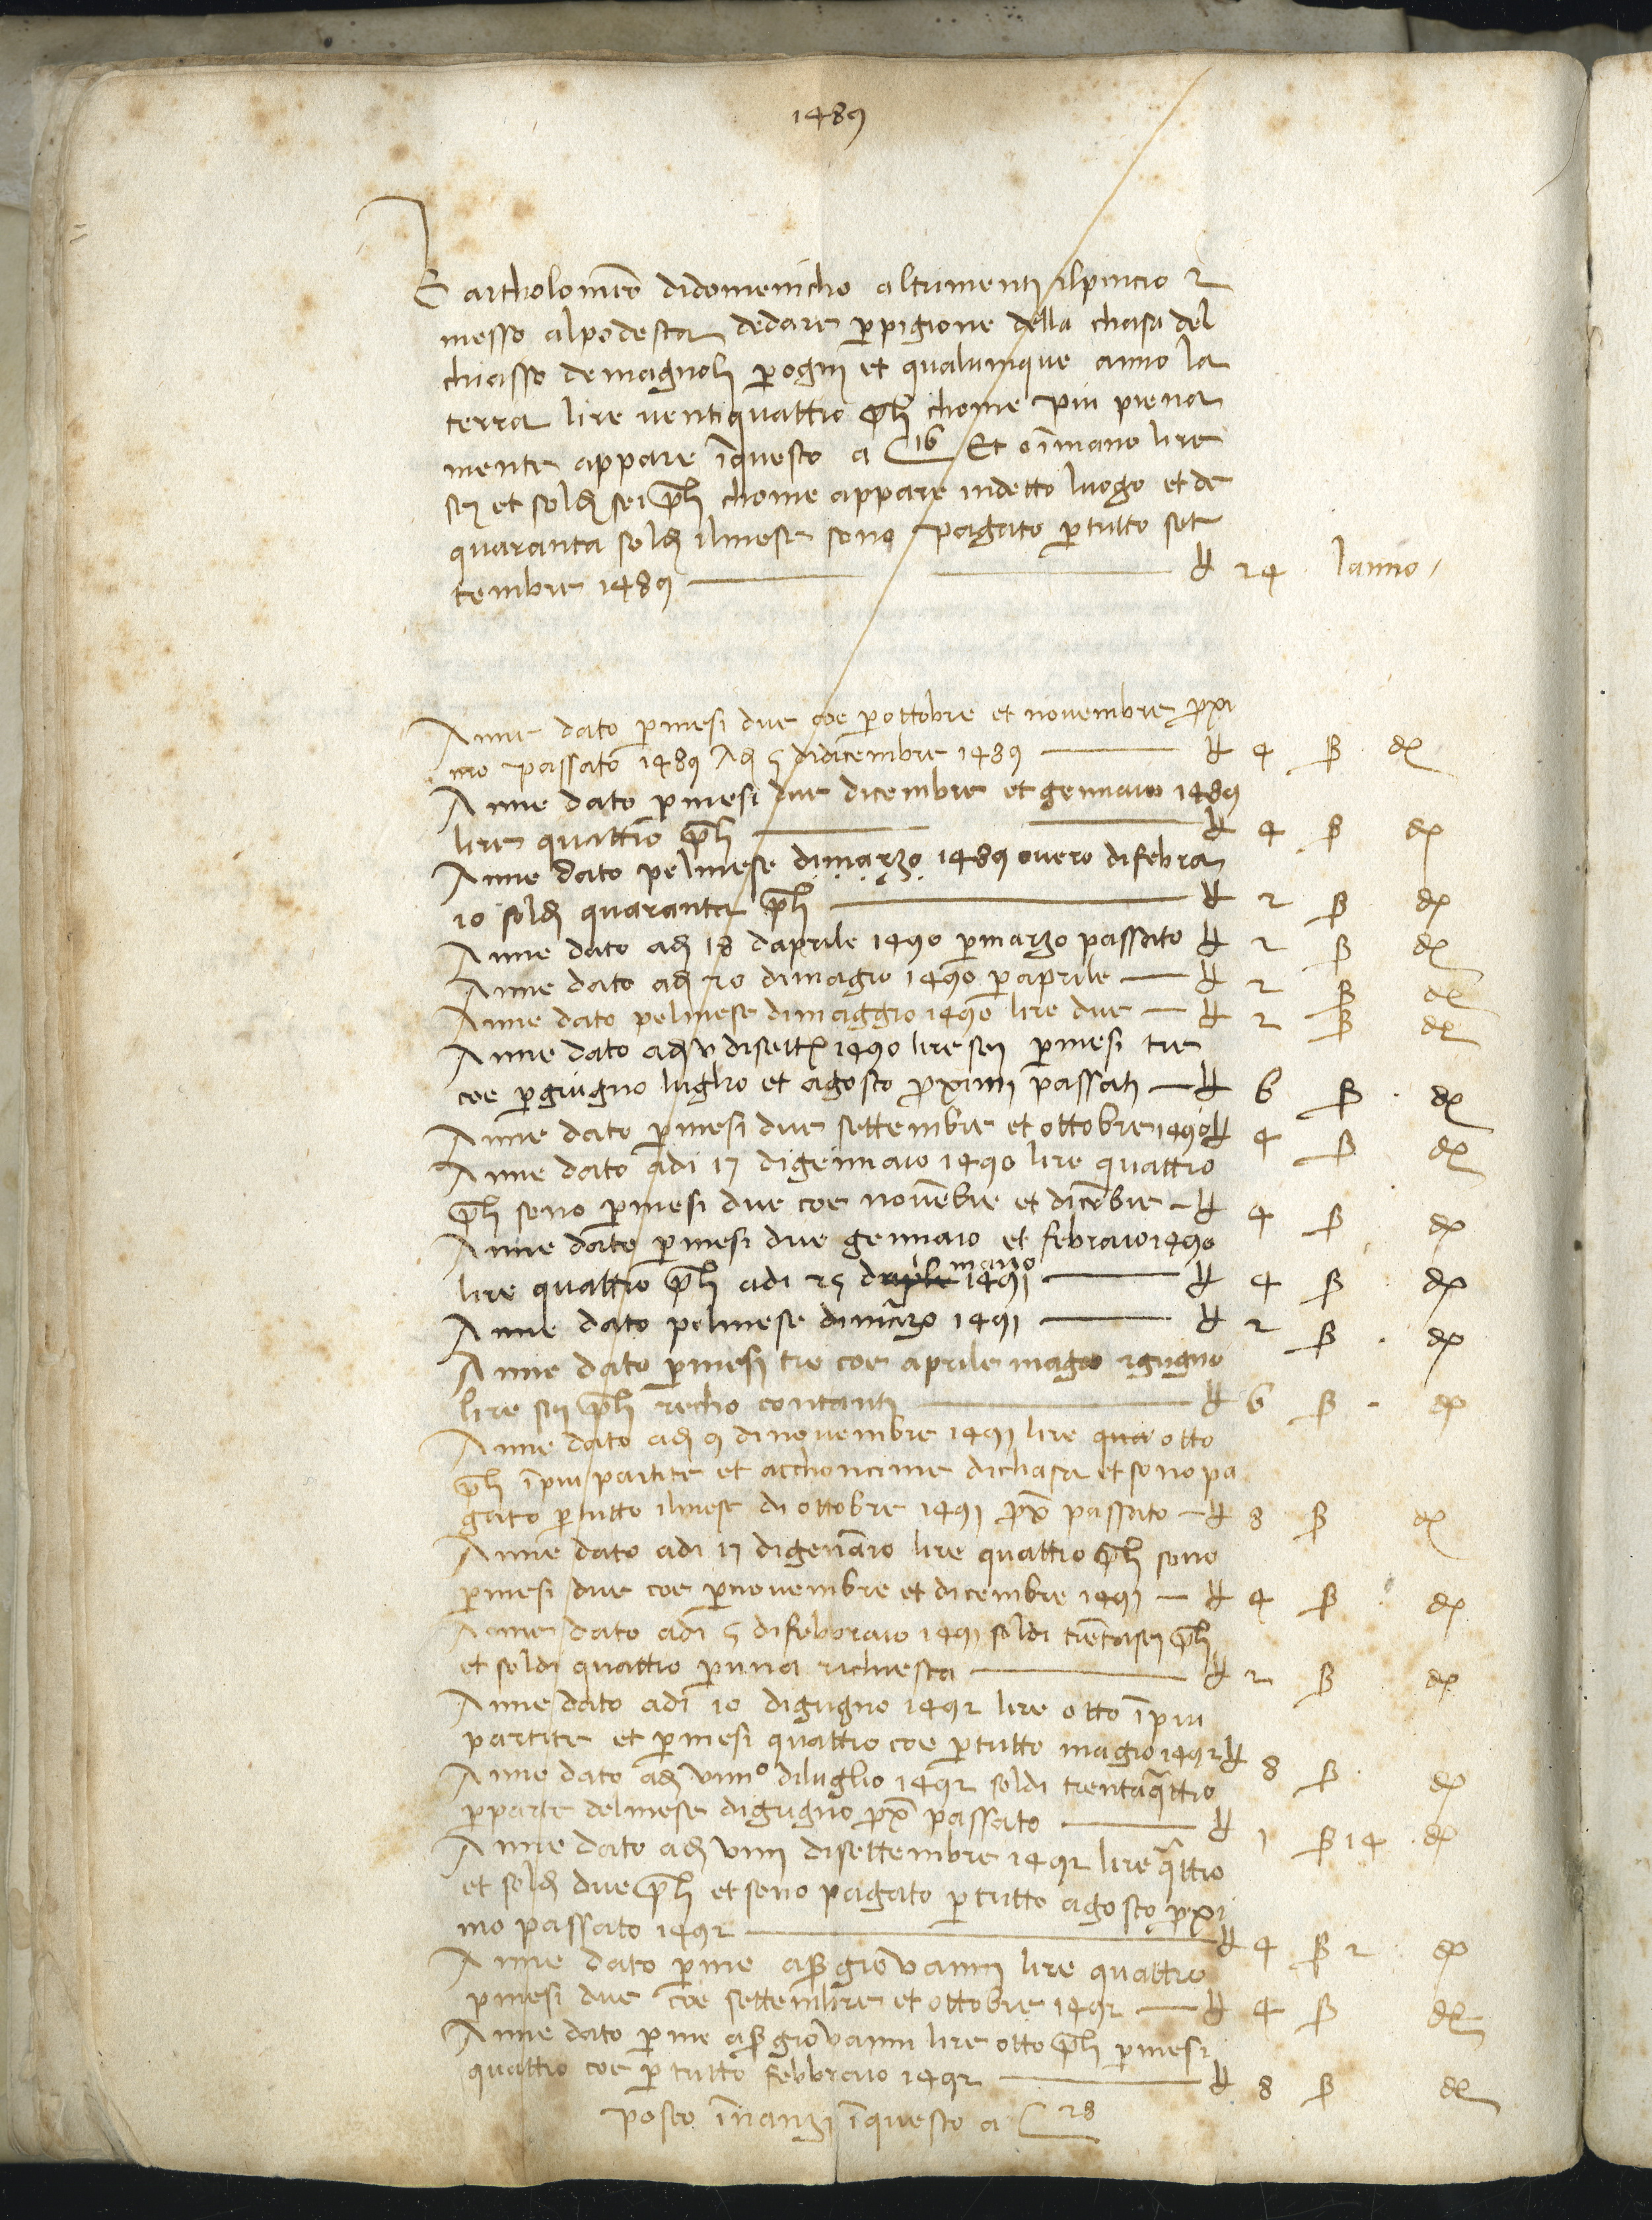 1489
Bartholomeo didomenicho altrimenti ilpincio
messo alpodesta dedare p pigione della chasa del
chiasso demagnoli p ogni et qualunque anno la
terra lire ventiquattro pli chome piu piena
mente appare iquesto a C 16 Et oimano lire
sej et soldj sei pli chome appare indetto luogo et de
quaranta soldj ilmese sono pagato p tutto set
tembre 1489 — ₶ 24 lanno
Anne dato p mesi due coe p ottobre et novembre pxi
mo passato 1489 Adj 5 didicembre 1489 — ₶ 4 ß d
Anne dato p mesi due dicembre et gennaio 1489
lire quattro pli — ₶ 4 ß d
Anne dato pelmese dimarzo 1489 overo difebra
io soldj quaranta pli — ₶ 2 ß d
Anne dato adj 18 daprile 1490 p marzo passato ₶ 2 ß d
Anne dato adj 20 dimagio 1490 p aprile — ₶ 2 ß d
Anne dato pelmese dimaggio 1490 lire due — ₶ 2 ß d
Anne dato adj v disett 1490 lire sej p mesi tre
coe p giugno luglio et agosto pximi passati — ₶ 6 ß d
Anne dato p mesi due settembre et ottobre 1490 ₶ 4 ß d
Anne dato adi 17 digennaio 1490 lire quattro
pli sono p mesi due coe novebre et dicebre — ₶ 4 ß d
Anne dato p mesi due gennaio et febraio 1490
lire quattro pli adi 25 daprile marzo 1491 — ₶ 4 ß d
Anne dato pelmese dimarzo 1491 — ₶ 2 ß d
Anne dato p mesi tre coe aprile magio 2 gugno
lire sej pli recho contanti — ₶ 6 ß d
Anne dato adj 9 dinovembre 1491 lire qua otto
pli ipiu partite et acchoncime dichasa et sono pa
gato p tutto ilmese di ottobre 1491 px passato — ₶ 8 ß d
Anne dato adi 17 digenaio lire quattro pli sono
p mesi due coe p novembre et dicembre 1491 — ₶ 4 ß d
Anne dato adi 5 difebbraio 1491 soldi tretasej pli
et soldi quattro p una richiesta — ₶ 2 ß d
Anne dato adi 10 digugno 1492 lire otto ipiu
partite et p mesi quattro coe p tutto magio 1492 ₶ 8 ß d
Anne dato adj viiij° diluglio 1492 soldi trentaqttro
p parte delmese digugno px passato — ₶ 1 ß 14 d
Anne dato adj viiij disettembre 1492 lire qttro
et soldj due pli et sono pagato p tutto agosto pxi
mo passato 1492 — ₶ 4 ß 2 d
Anne dato p me aß giovanni lire quattro
p mesi due coe settembre et ottobre 1492 — ₶ 4 ß d
Anne dato p me aß giovanni lire otto pli p mesi
quattro coe p tutto febbraio 1492 — ₶ 8 ß d
posto inanzi iquesto a C 28